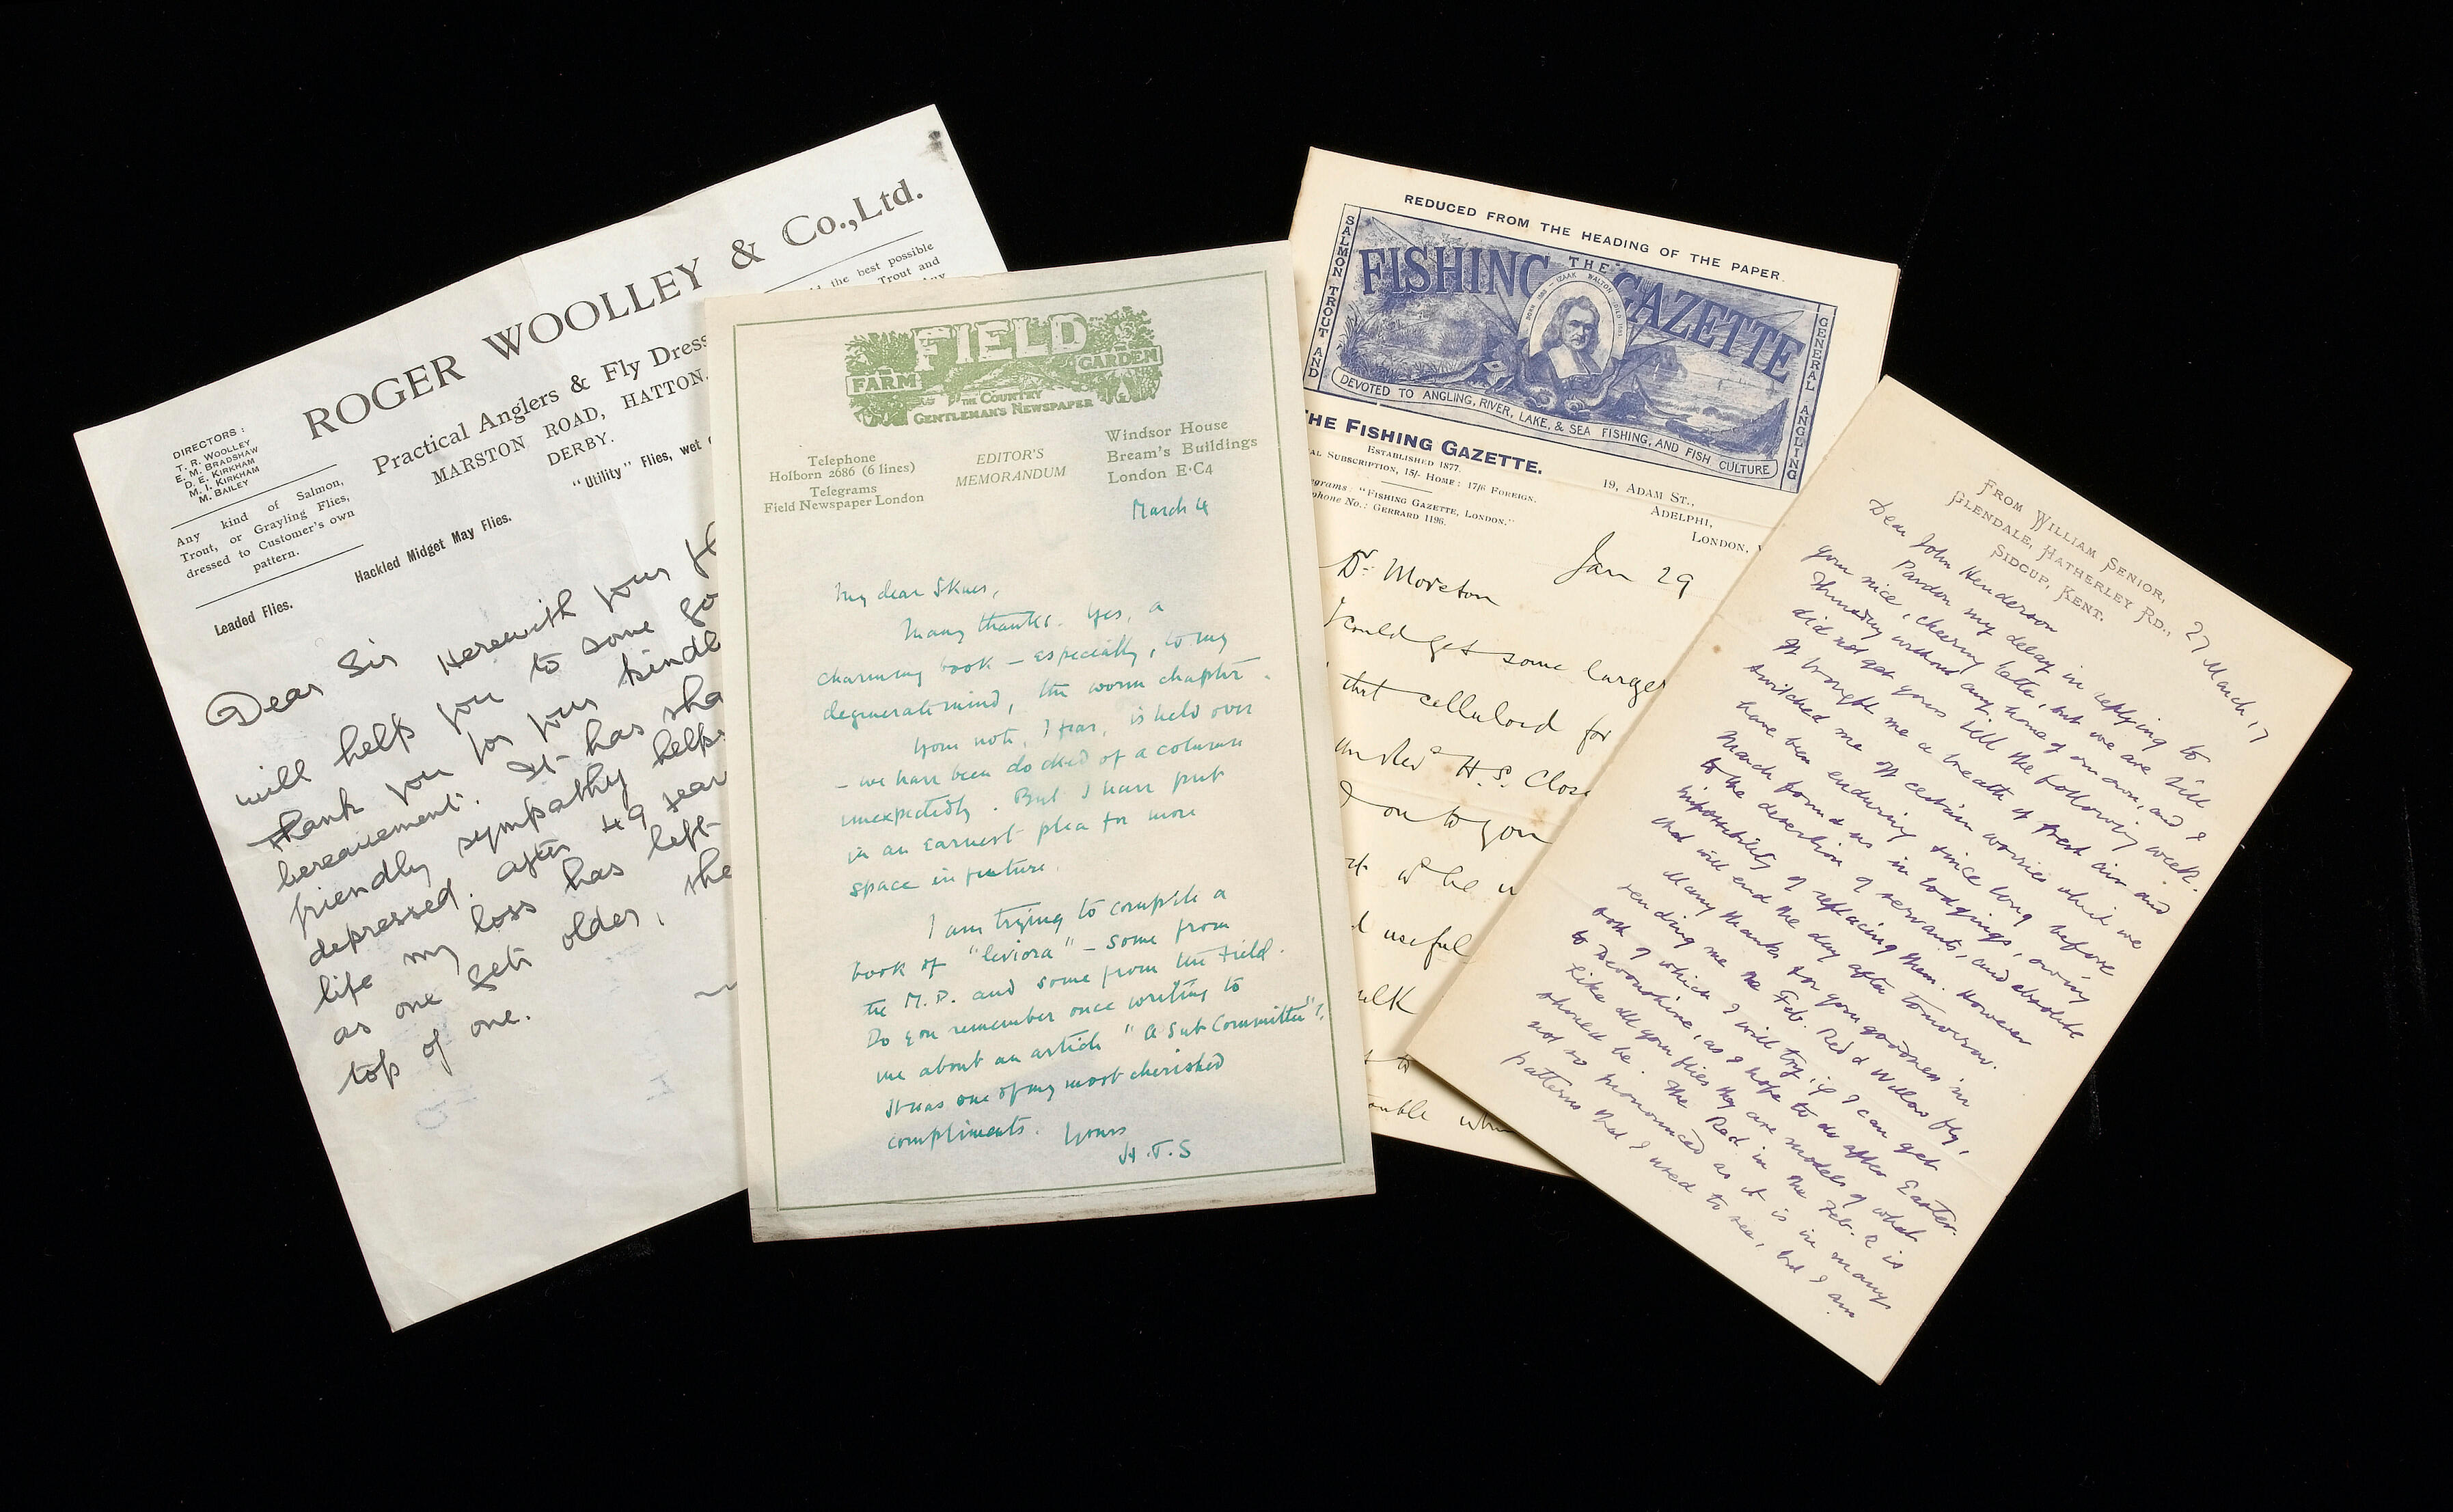 ROGER WOOLLEY & Co.,Ltd.
the best possible
Trout and
Practical Anglers & Fly Dress
MARSTON ROAD, HATTON,
DERBY.
DIRECTORS :
T. R. WOOLLEY
E. M. BRADSHAW
D. E. KIRKHAM
M. I. KIRKHAM
M. BAILEY
Any kind of Salmon,
Trout, or Grayling Flies,
dressed to Customer's own
pattern.
"Utility" Flies, wet
Hackled Midget May Flies.
Leaded Flies.
Dear Sir Herewith your
will help you to some go
thank you for your kindl
bereavement. It has sha
friendly sympathy helps
depressed. after 49 year
life my loss has left
as one gets older, she
top of one.
FIELD
FARM
GARDEN
THE COUNTRY
GENTLEMAN'S NEWSPAPER
Telephone
Holborn 2686 (6 lines)
Telegrams
Field Newspaper London
EDITOR'S
MEMORANDUM
Windsor House
Bream's Buildings
London E·C4
March 4
My dear Skues,
Many thanks. Yes, a
charming book – especially, to my
degenerate mind, the worm chapter.
Your note, I fear, is held over
– we have been docked of a column
unexpectedly. But I have put
in an earnest plea for more
space in future.
I am trying to compile a
book of "leviora" – some from
the M.P. and some from the Field.
Do you remember once writing to
me about an article "A Sub Committee"?
It was one of my most cherished
compliments. Yours
H.T.S
REDUCED FROM THE HEADING OF THE PAPER
SALMON TROUT AND
THE
FISHING GAZETTE
BORN 1593 – IZAAK WALTON – DIED 1683
GENERAL ANGLING
DEVOTED TO ANGLING, RIVER, LAKE, & SEA FISHING, AND FISH CULTURE
THE FISHING GAZETTE.
ESTABLISHED 1877.
AL SUBSCRIPTION, 15/- HOME: 17/6 FOREIGN.
egrams: "FISHING GAZETTE, LONDON."
phone No.: GERRARD 1196.
19, ADAM ST.,
ADELPHI,
LONDON,
Jan 29
Dr. Moreton
I could get some larger
that celluloid for
H. S. Close
on to you
useful
to
FROM WILLIAM SENIOR,
GLENDALE, HATHERLEY RD.,
SIDCUP, KENT.
27 March, 17
Dear John Henderson
Pardon my delay in replying to
your nice, cheering letter, but we are still
without any home of our own, and I
did not get yours till the following week.
It brought me a breath of fresh air and
switched me off certain worries which we
have been enduring since long before
March found us in lodgings, owing
to the desertion of servants, and absolute
impossibility of replacing them. However
that will end the day after tomorrow.
Many thanks for your goodness in
sending me the Feb. Red & Willow fly,
both of which I will try, if I can get
to Devonshire, as I hope to do after Easter.
Like all your flies they are models of what
should be. The Red in the Feb. R is
not so pronounced as it is in many
patterns that I used to see, but I am